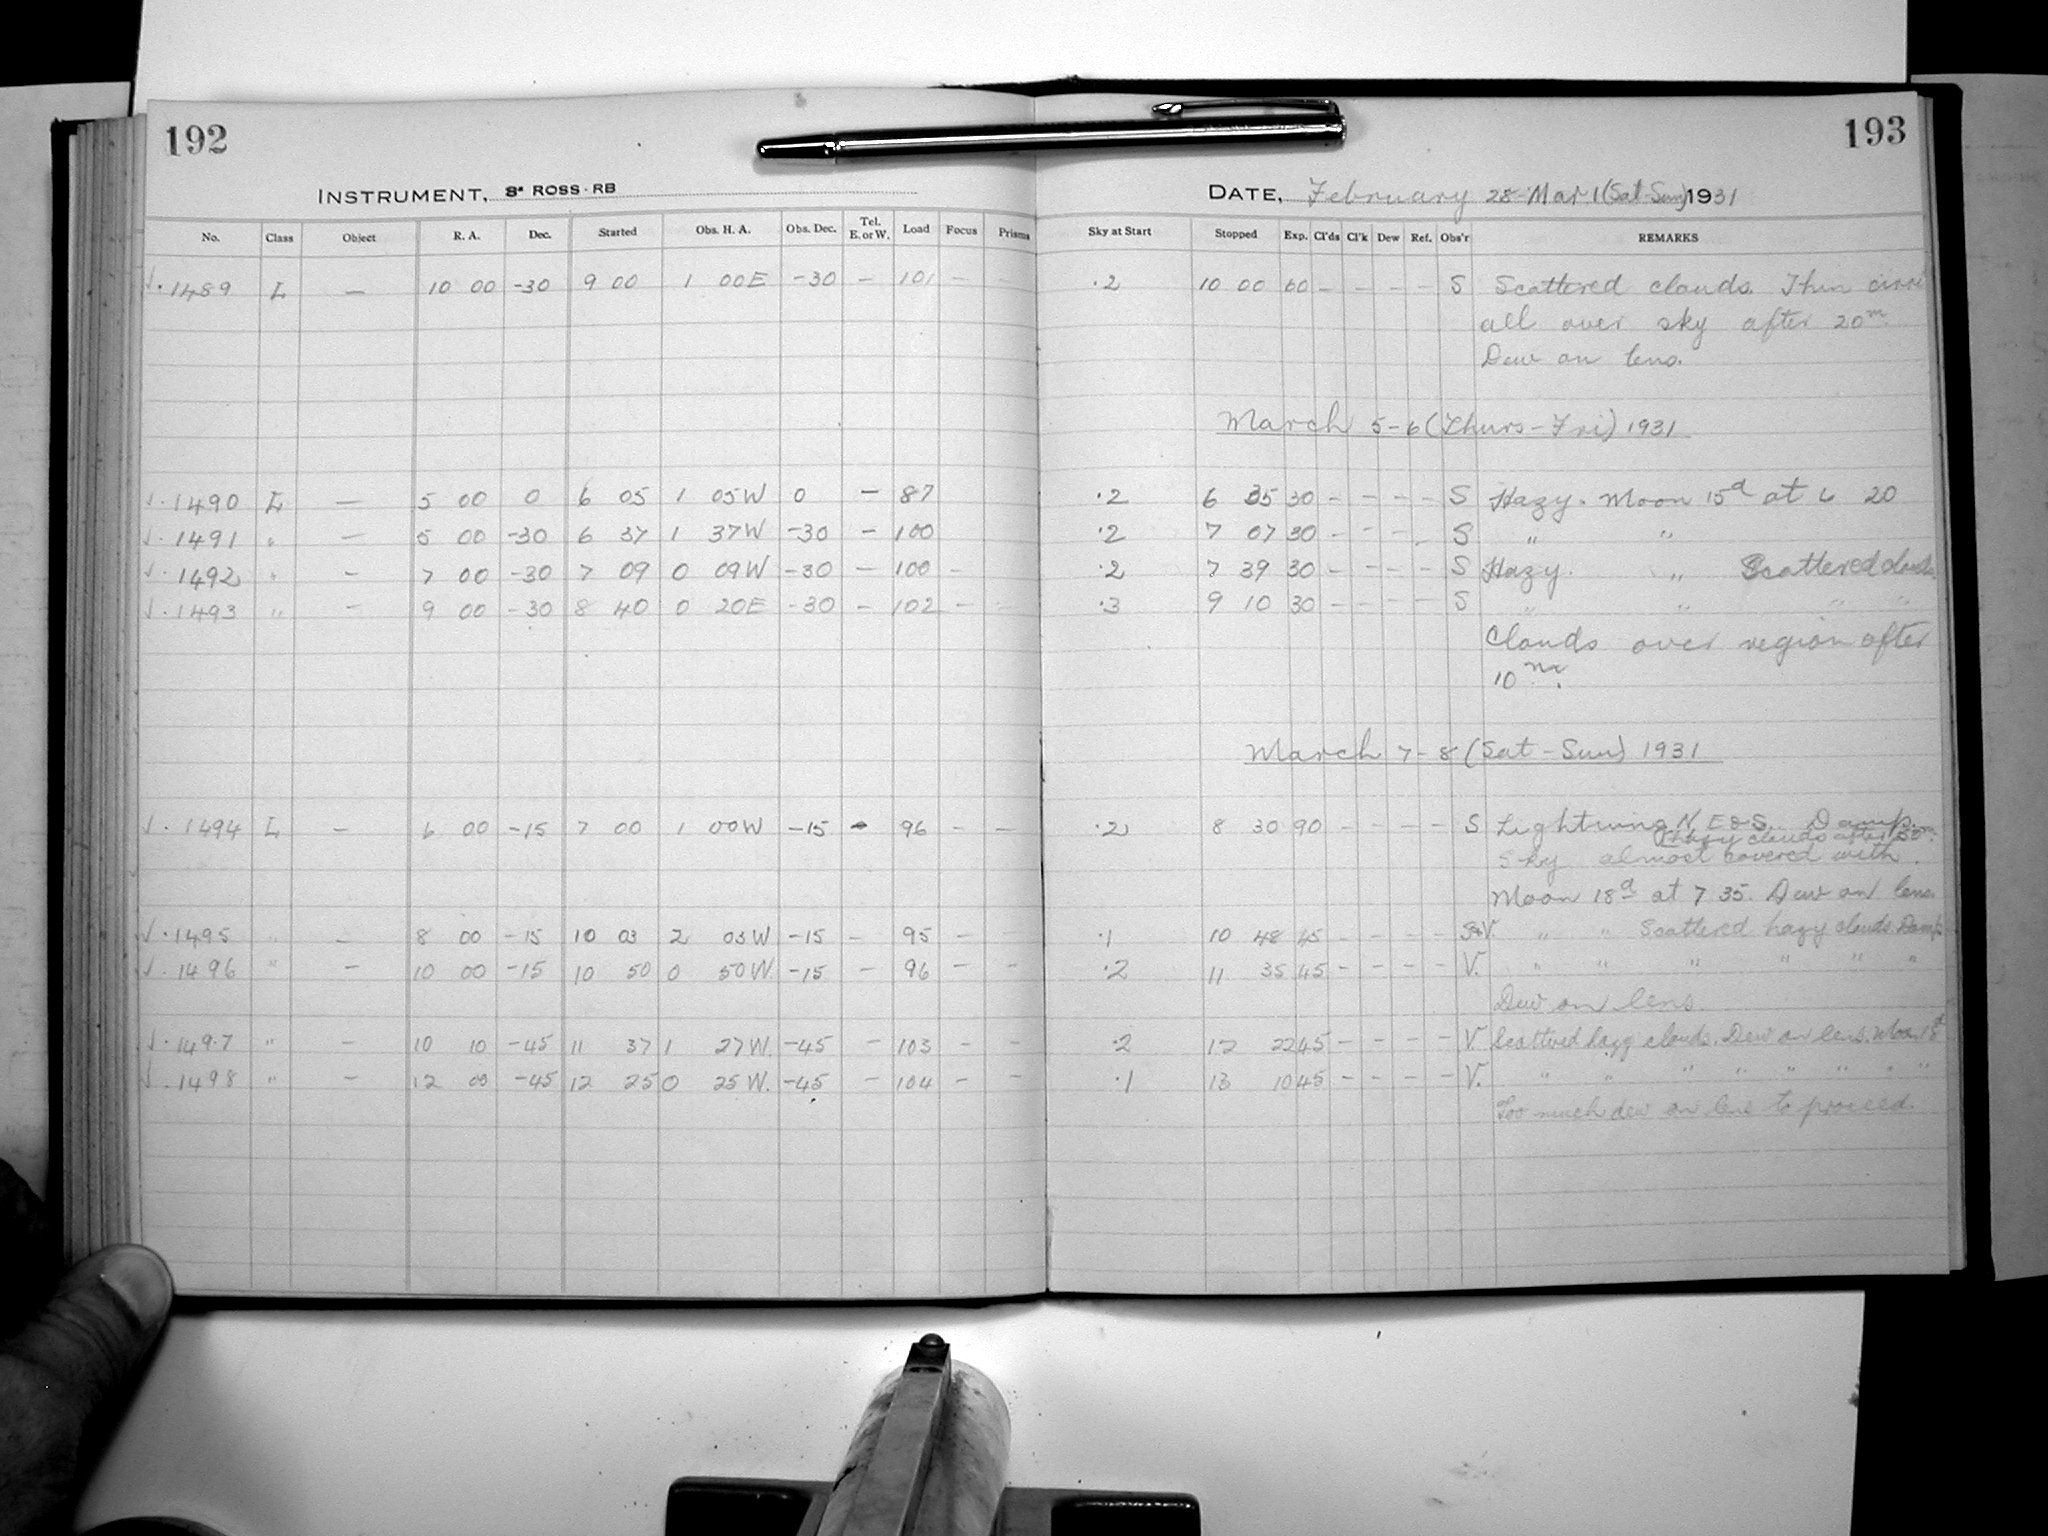 192
193
INSTRUMENT, 8" ROSS·RB
DATE, February 28-Mar 1 (Sat-Sun) 1931
No. Class Object R. A. Dec. Started Obs. H. A. Obs. Dec. Tel. E. or W. Load Focus Prisms Sky at Start Stopped Exp. Cl'ds Cl'k Dew Ref. Obs'r REMARKS
√·1489 L — 10 00 -30 9 00 1 00E -30 — 101 — ·2 10 00 60 — — — — S Scattered clouds. Thin cirri
all over sky after 20m.
Dew on lens.
March 5-6 (Thurs-Fri) 1931
√·1490 L — 5 00 0 6 05 1 05W 0 — 87 ·2 6 35 30 — — — — S Hazy. Moon 15d at 6 20
√·1491 " — 5 00 -30 6 37 1 37W -30 — 100 ·2 7 07 30 — — — — S " "
√·1492 " — 7 00 -30 7 09 0 09W -30 — 100 — ·2 7 39 30 — — — — S Hazy. " Scattered clouds
√·1493 " — 9 00 -30 8 40 0 20E -30 — 102 — ·3 9 10 30 — — — — S " " " "
Clouds over region after
10m.
March 7-8 (Sat-Sun) 1931
√·1494 L — 6 00 -15 7 00 1 00W -15 — 96 — — ·2 8 30 90 — — — — S Lightning N E & S. Damp.
Sky almost covered with hazy clouds after 50m.
Moon 18d at 7 35. Dew on lens.
√·1495 " — 8 00 -15 10 03 2 03W -15 — 95 — — ·1 10 48 45 — — — — S&V " " Scattered hazy clouds. Damp
√·1496 " — 10 00 -15 10 50 0 50W -15 — 96 — — ·2 11 35 45 — — — — V. " " " " " "
Dew on lens.
√·1497 " — 10 10 -45 11 37 1 27W. -45 — 103 — — ·2 12 22 45 — — — — V Scattered hazy clouds. Dew on lens. Moon 18d
√·1498 " — 12 00 -45 12 25 0 25W. -45 — 104 — — ·1 13 10 45 — — — — V. " " " " " " " "
Too much dew on lens to proceed.